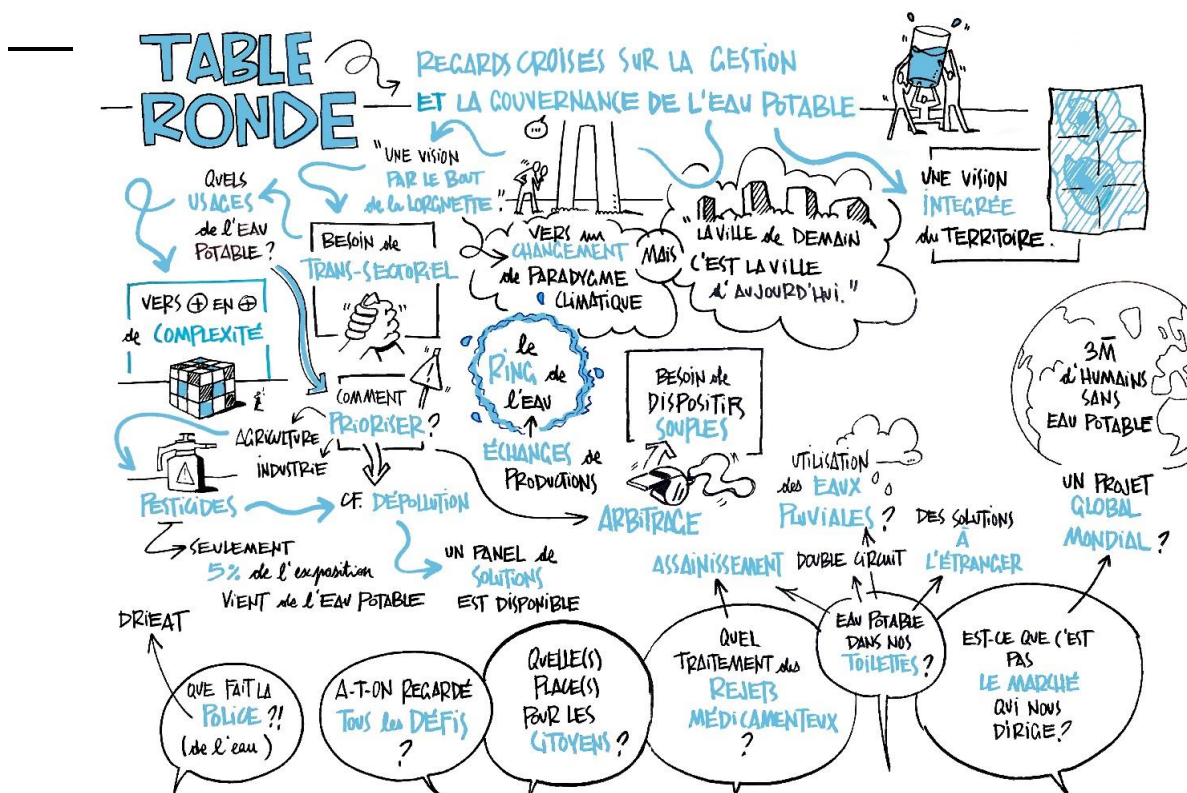 TABLE
RONDE
REGARDS CROISÉS SUR LA GESTION
ET LA GOUVERNANCE DE L'EAU POTABLE
"UNE VISION
PAR LE BOUT
de la LORGNETTE."
...
QUELS
USAGES
de l'EAU
POTABLE?
BESOIN de
TRANS-SECTORIEL
VERS un
CHANGEMENT
de PARADYGME
CLIMATIQUE
MAIS
"LA VILLE de DEMAIN
C'EST LA VILLE
d'AUJOURD'HUI."
UNE VISION
INTEGRÉE
du TERRITOIRE.
VERS ⊕ EN ⊕
de COMPLEXITÉ
COMMENT
PRIORISER?
AGRICULTURE
INDUSTRIE
le
RING de
l'EAU
ÉCHANGES de
PRODUCTIONS
BESOIN de
DISPOSITIFS
SOUPLES
ARBITRAGE
3M̄
d'HUMAINS
SANS
EAU POTABLE
UN PROJET
GLOBAL
MONDIAL?
PESTICIDES
CF. DÉPOLLUTION
SEULEMENT
5% de l'exposition
VIENT de l'EAU POTABLE
UN PANEL de
SOLUTIONS
EST DISPONIBLE
UTILISATION
des EAUX
PLUVIALES?
ASSAINISSEMENT
DOUBLE CIRCUIT
DES SOLUTIONS
À
L'ÉTRANGER
DRIEAT
QUE FAIT LA
POLICE?!
(de l'eau)
A-T-ON REGARDÉ
TOUS les DÉFIS
?
QUELLE(S)
PLACE(S)
POUR LES
CITOYENS?
QUEL
TRAITEMENT des
REJETS
MÉDICAMENTEUX
?
EAU POTABLE
DANS NOS
TOILETTES?
EST-CE QUE C'EST
PAS
LE MARCHÉ
QUI NOUS
DIRIGE?